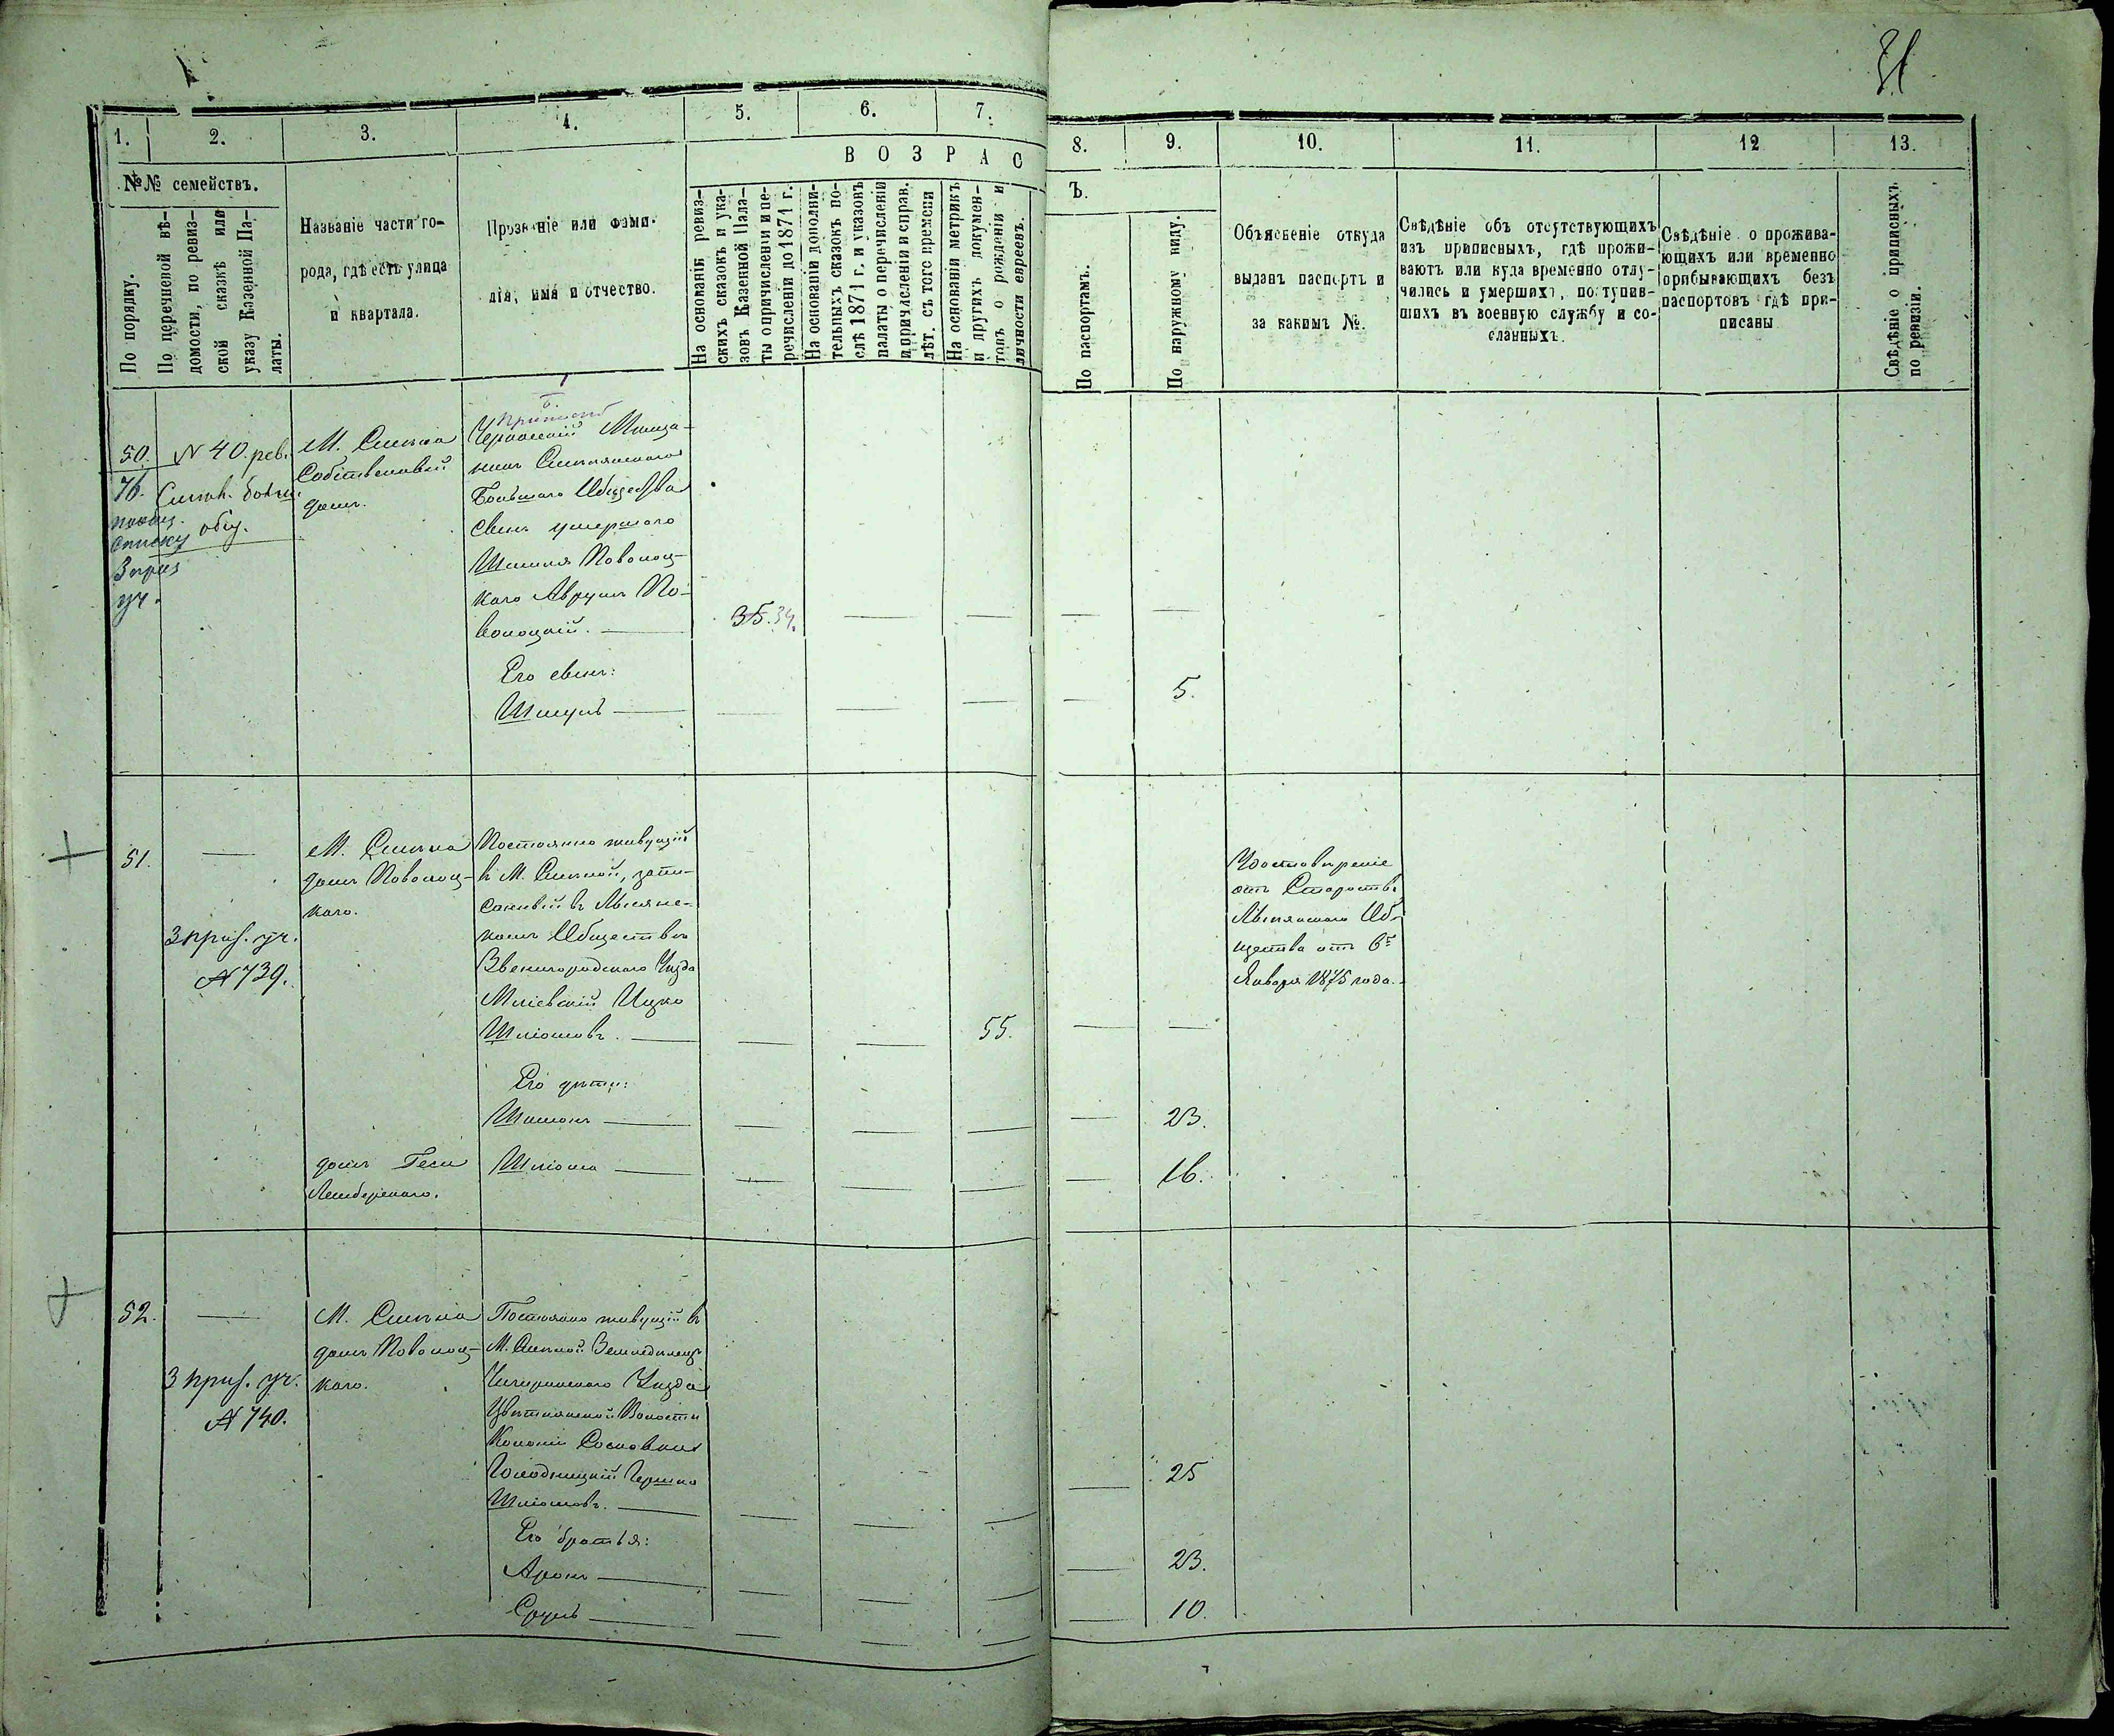 31
1. 2. 3. 4. 5. 6. 7.
8. 9. 10. 11. 12 13.
ВОЗРАС
Ъ.
№№ семействъ.
По порядку.
По перечневой вѣ-
домости, по ревиз-
ской сказкѣ или
указу Казенной Па-
латы.
Названіе части го-
рода, гдѣ есть улица
и квартала.
Прозваніе или фами-
лія, имя и отчество.
На основаніи ревиз-
скихъ сказокъ и ука-
зовъ Казенной Пала-
ты о причисленіи и пе-
речисленіи до 1871 г.
На основаніи дополни-
тельныхъ сказокъ по-
слѣ 1871 г. и указовъ
палаты о перечисленіи
и причисленіи и справ.
лѣт. съ того времени
На основаніи метрикъ
и другихъ докумен-
товъ о рожденіи и
личности евреевъ.
По паспортамъ.
По наружному виду.
Объясненіе откуда
выданъ паспортъ и
за какимъ №.
Свѣдѣніе объ отсутствующихъ
изъ приписныхъ, гдѣ прожи-
ваютъ или куда временно отлу-
чились и умершихъ, поступив-
шихъ въ военную службу и со-
сланныхъ.
Свѣдѣніе о прожива-
ющихъ или временно
прибывающихъ безъ
паспортовъ гдѣ при-
писаны
Свѣдѣніе о приписныхъ
по ревизіи.
50.
76.
списку
3 приз
уч.
№ 40. рев.
общ.
М. Смѣла
Собственный
домъ.
Мѣща-
нинъ Смѣлянскаго
Большаго Общества
сынъ умершаго
Поволоц-
каго Аврумъ По-
волоцкій.
35. 34.
Его сынъ:
Шмуль
5.
51.
3 приз. уч.
№ 739.
М. Смѣла
домъ Поволоц-
каго.
Постоянно живущій
в М. Смѣлой, запи-
санный въ Лысян-
комъ Обществѣ
Звенигородскаго Уѣзда
Мліевскій Ицко
Шліомовъ.
55.
Удостовѣреніе
отъ Старосты
Лысянскаго Об-
щества отъ 6го
Января 1875 года.
Его дѣти:
Шимонъ
23.
домъ Геси
Лембержскаго.
Шліома
16.
52.
3 приз. уч.
№ 740.
М. Смѣла
домъ Поволоц-
каго.
Постоянно живущій в
М. Смѣлой Земледѣлецъ
Чигиринскаго Уѣзда
Цвѣтнянской Волости
Колоніи Сосновки
Голодницкій Гершко
Шліомовъ.
25
Его братья:
Аронъ
23.
Сруль
10.